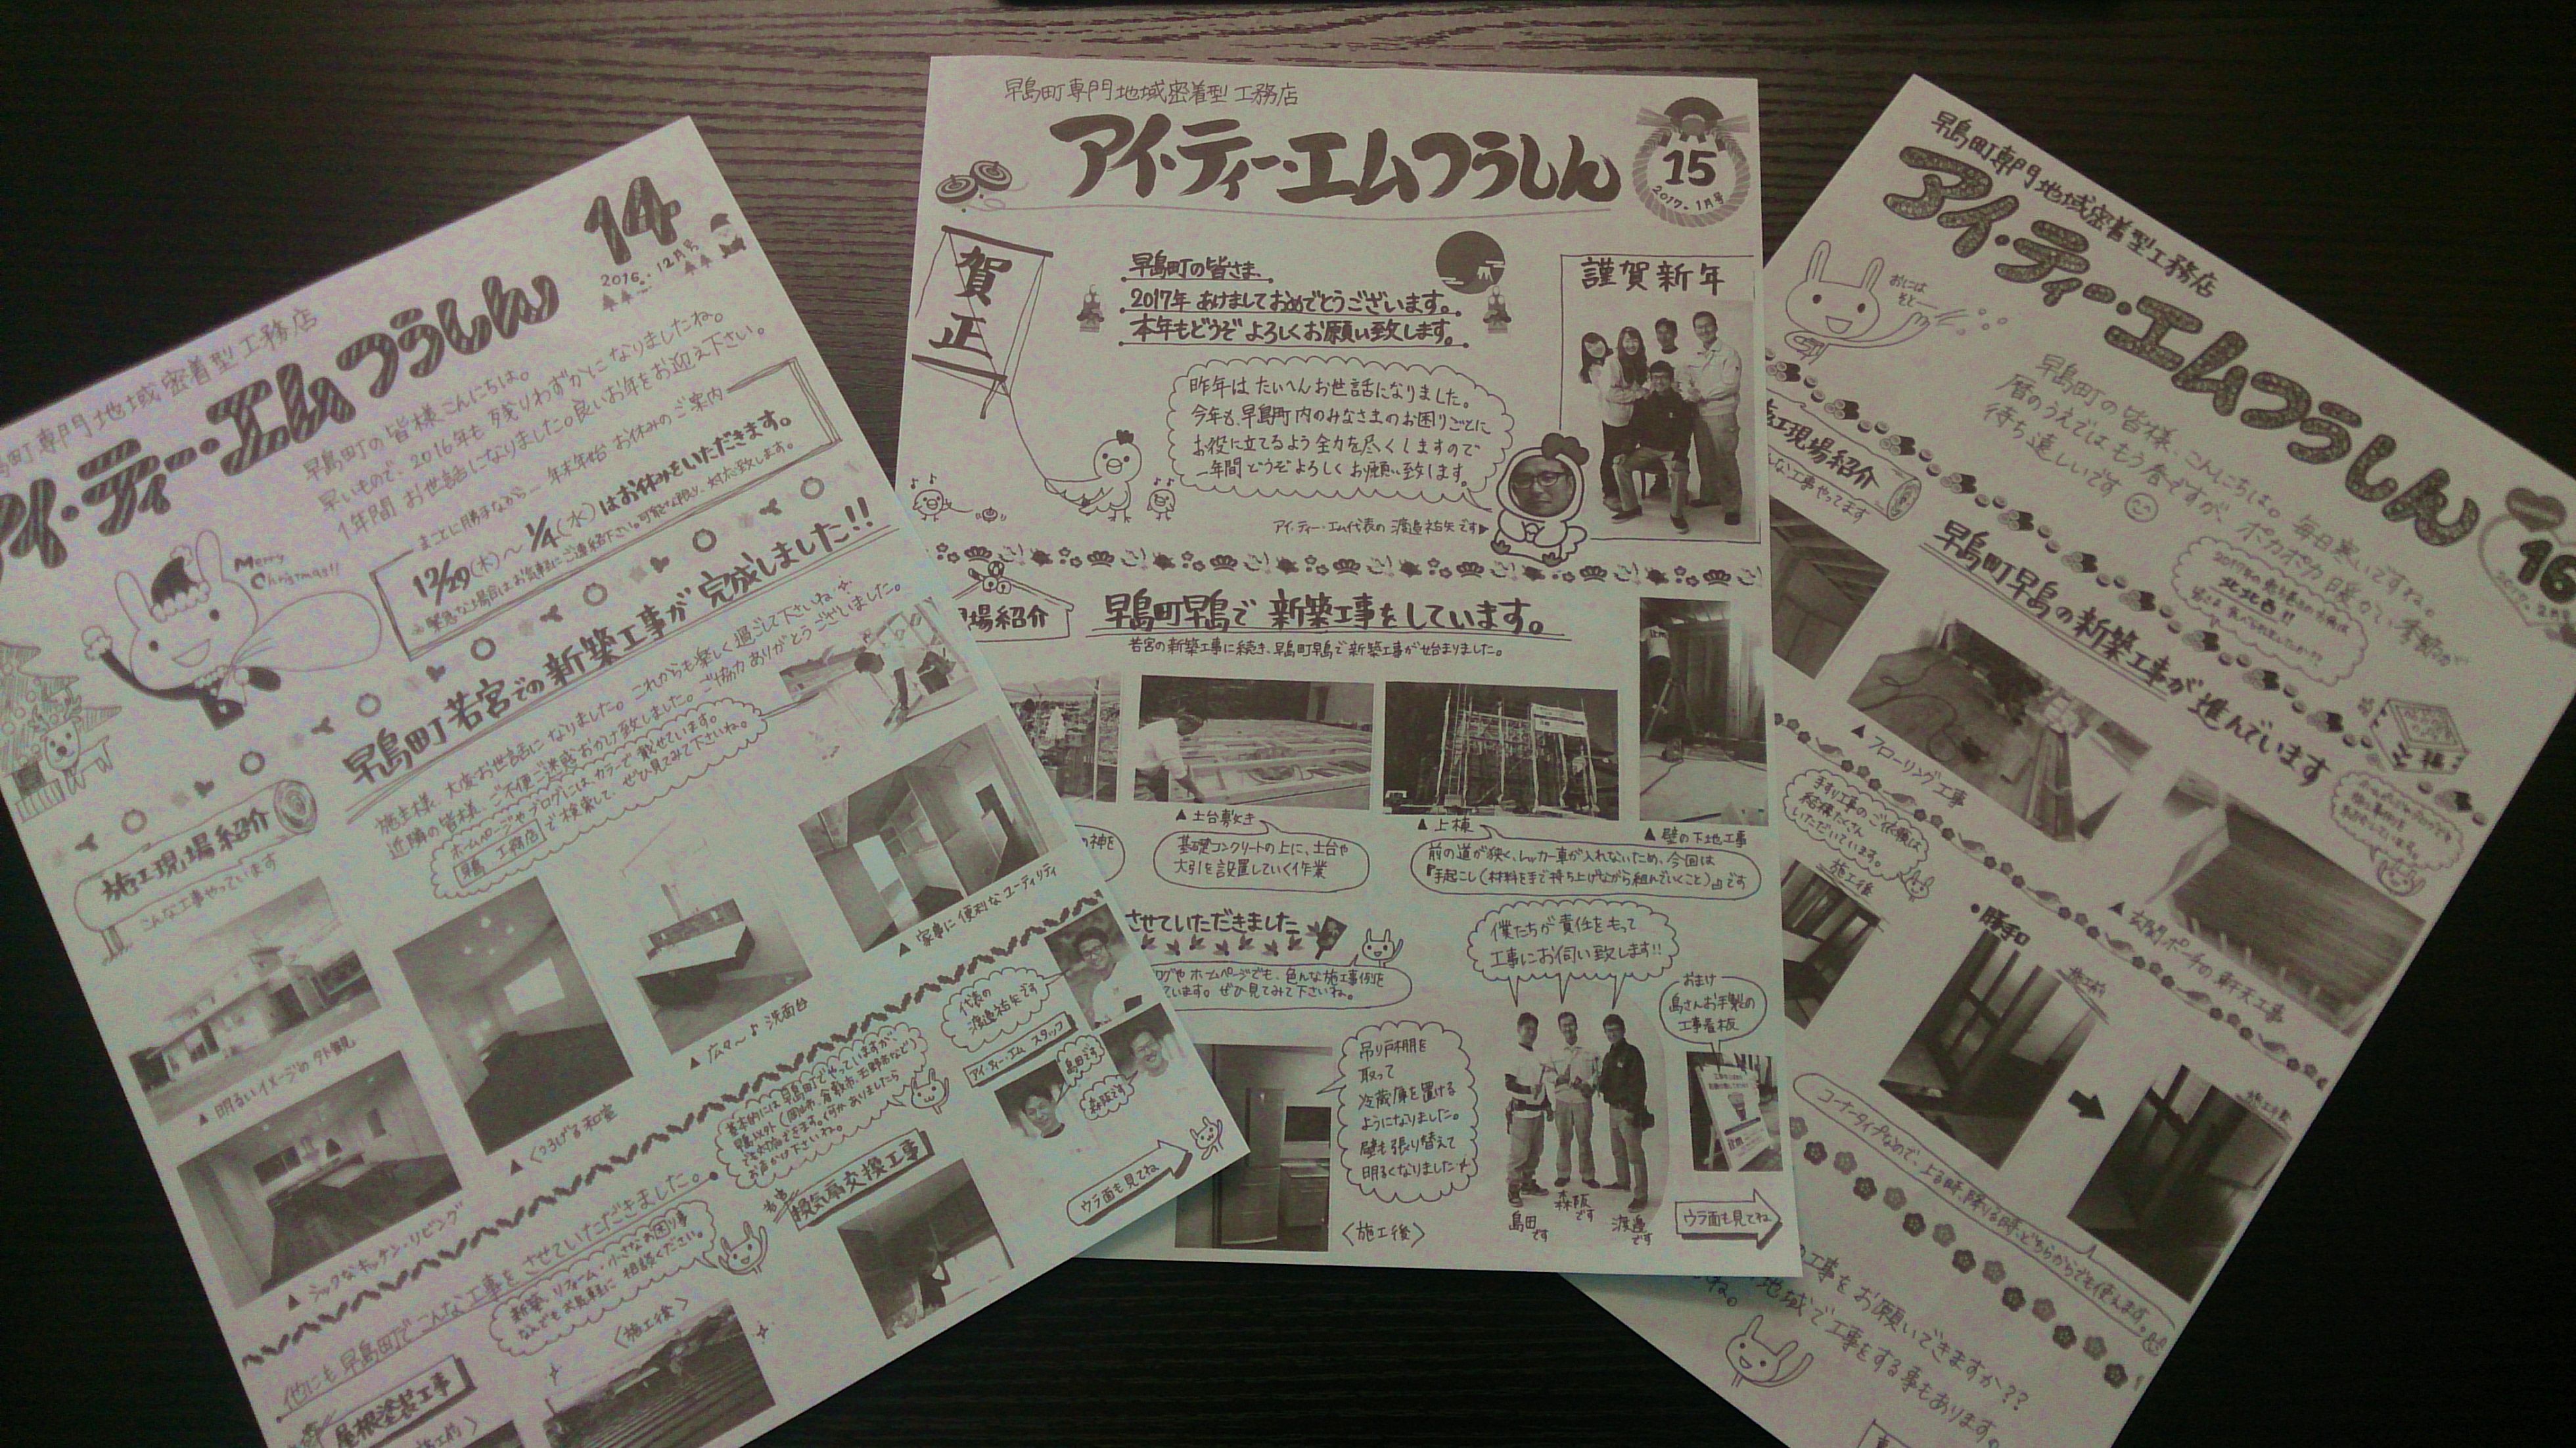 早島町専門地域密着型工務店
アイ・ティー・エムつうしん
14
2016.12月号
早島町の皆様、こんにちは。
早いもので、2016年も残りわずかになりましたね。
1年間お世話になりました。良いお年をお迎え下さい。
Merry
Christmas!!
まことに勝手ながら― 年末年始 お休みのご案内
12/29(木)～1/4(水)はお休みをいただきます。
早島町若宮での新築工事が完成しました!!
施主様、大変お世話になりました。これからも楽しく過ごして下さいね
近隣の皆様、ご不便ご迷惑おかけ致しました。ご協力ありがとうございました。
ホームページやブログには、カラーで載せています。
早島 工務店 で検索して、ぜひ見てみて下さいね。
施工現場紹介
こんな工事やっています
▲明るいイメージの外観
▲くつろげる和室
▲広々～♪洗面台
▲家事に便利なユーティリティ
▲シックなキッチン・リビング
代表の
渡邉祐矢です
アイ・ティー・エム スタッフ
島田です
森阪です
他にも早島町でこんな工事をさせていただきました。
新築、リフォーム・小さなお困り事
なんでもお気軽に相談ください。
換気扇交換工事
屋根塗装工事
<施工後>
ウラ面も見てね
早島町専門地域密着型 工務店
アイ・ティー・エムつうしん
15
2017.1月号
賀正
早島町の皆さま、
2017年 あけましておめでとうございます。
本年もどうぞ よろしくお願い致します。
謹賀新年
昨年は たいへんお世話になりました。
今年も、早島町内のみなさまのお困りごとに
お役に立てるよう全力を尽くしますので
一年間どうぞよろしくお願い致します。
アイ・ティー・エム代表の 渡邉祐矢です▶
場紹介
早島町早島で 新築工事をしています。
若宮の新築工事に続き、早島町早島で新築工事が始まりました。
▲土台敷き
基礎コンクリートの上に、土台や
大引を設置していく作業
▲上棟
前の道が狭く、レッカー車が入れないため、今回は
『手起こし(材料を手で持ち上げながら組んでいくこと)』です
▲壁の下地工事
させていただきました
ログや ホームページでも、色んな施工事例を
ています。ぜひ見てみて下さいね。
僕たちが責任をもって
工事にお伺い致します!!
おまけ
島さんお手製の
工事看板
吊り戸棚を
取って
冷蔵庫を置ける
ようになりました。
壁も張り替えて
明るくなりました
〈施工後〉
島田です
森阪です
渡邉です
ウラ面も見てね
早島町専門地域密着型工務店
アイ・ティー・エムつうしん
16
おには
そと
早島町の皆様、こんにちは。毎日寒いですね。
暦のうえではもう春ですが、ポカポカ暖かい季節が
待ち遠しいです
北北西!!
施工現場紹介
こんな工事やってます
早島町早島の新築工事が進んでいます
福
▲フローリング工事
▲玄関ポーチの軒天工事
手すり工事のご依頼は
結構たくさん
いただいています。
施工後
・勝手口
コーナータイプなので、上る時、降りる時、どちらからでも使えます。
工事をお願いできますか??
地域で工事をする事もあります。